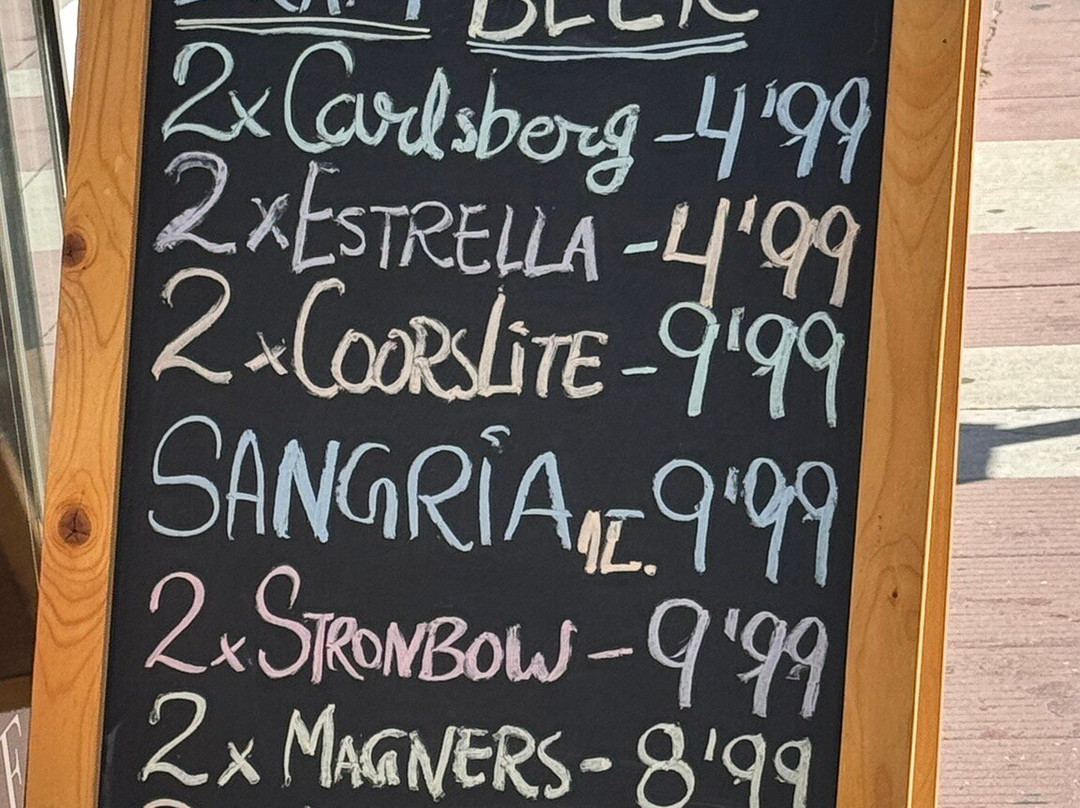 DRAFT BEER
2x Carlsberg - 4'99
2x ESTRELLA - 4'99
2x COORSLiTE - 9'99
SANGRÍA 1L. - 9'99
2x STRONBOW - 9'99
2x MAGNERS - 8'99